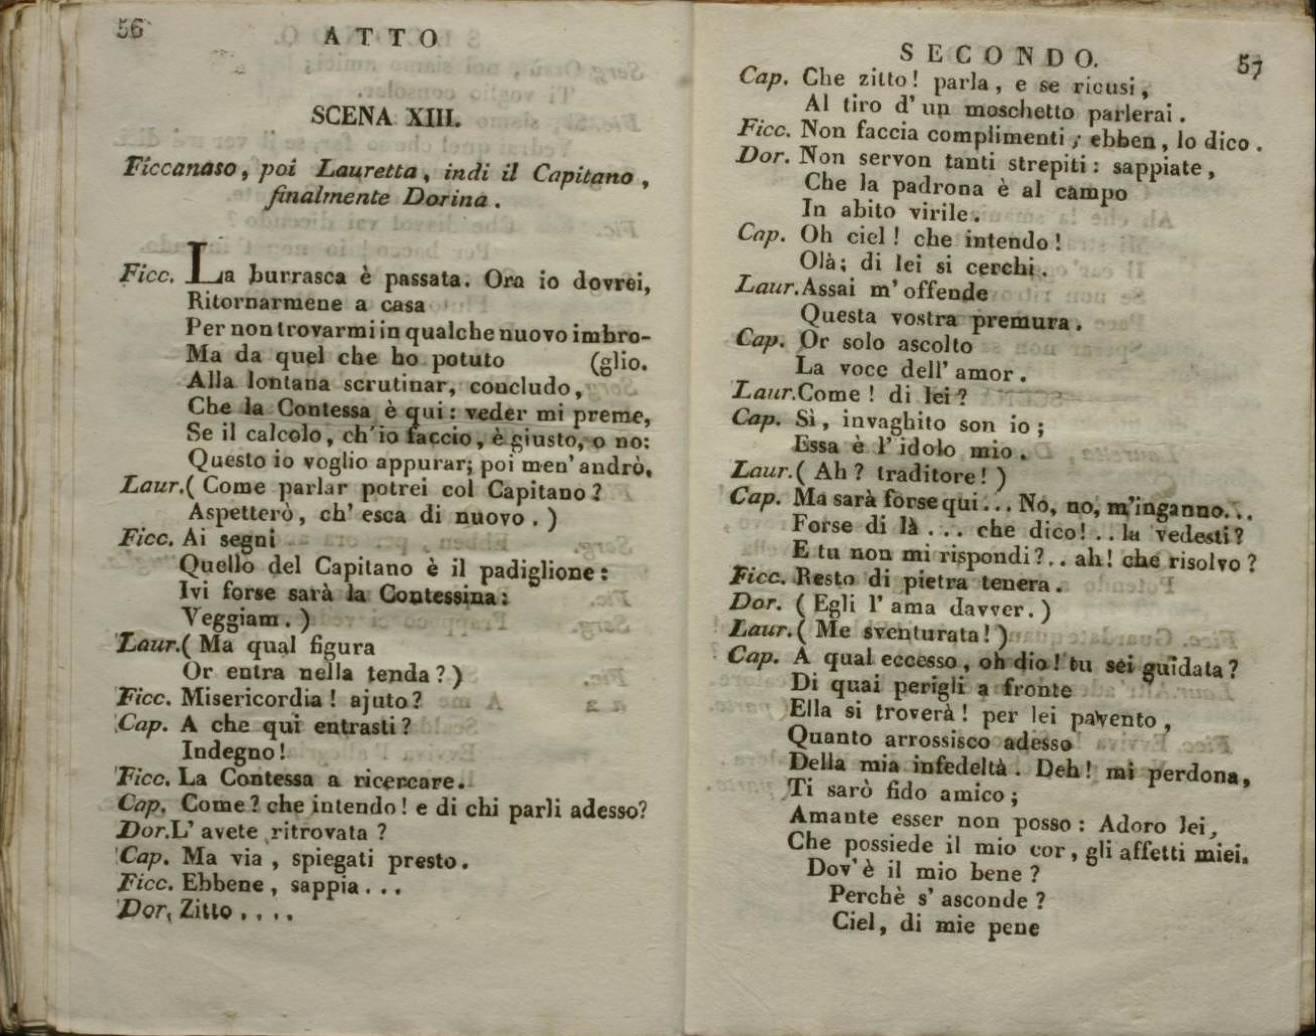 56
ATTO
SCENA XIII.
Ficcanaso, poi Lauretta, indi il Capitano,
finalmente Dorina.
Ficc. La burrasca è passata. Ora io dovrei,
Ritornarmene a casa
Per non trovarmi in qualche nuovo imbro-
Ma da quel che ho potuto (glio.
Alla lontana scrutinar, concludo,
Che la Contessa è qui: veder mi preme,
Se il calcolo, ch'io faccio, è giusto, o no:
Questo io voglio appurar; poi men' andrò.
Laur.( Come parlar potrei col Capitano?
Aspetterò, ch' esca di nuovo. )
Ficc. Ai segni
Quello del Capitano è il padiglione:
Ivi forse sarà la Contessina:
Veggiam. )
Laur.( Ma qual figura
Or entra nella tenda? )
Ficc. Misericordia! ajuto?
Cap. A che qui entrasti?
Indegno!
Ficc. La Contessa a ricercare.
Cap. Come? che intendo! e di chi parli adesso?
Dor.L' avete ritrovata?
Cap. Ma via, spiegati presto.
Ficc. Ebbene, sappia...
Dor. Zitto....
SECONDO.
57
Cap. Che zitto! parla, e se ricusi,
Al tiro d' un moschetto parlerai.
Ficc. Non faccia complimenti; ebben, lo dico.
Dor. Non servon tanti strepiti: sappiate,
Che la padrona è al campo
In abito virile.
Cap. Oh ciel! che intendo!
Olà; di lei si cerchi.
Laur.Assai m' offende
Questa vostra premura.
Cap. Or solo ascolto
La voce dell' amor.
Laur.Come! di lei?
Cap. Sì, invaghito son io;
Essa è l' idolo mio.
Laur.( Ah? traditore! )
Cap. Ma sarà forse qui... No, no, m'inganno...
Forse di là... che dico!.. la vedesti?
E tu non mi rispondi?.. ah! che risolvo?
Ficc. Resto di pietra tenera.
Dor. ( Egli l' ama davver. )
Laur.( Me sventurata! )
Cap. A qual eccesso, oh dio! tu sei guidata?
Di quai perigli a fronte
Ella si troverà! per lei pavento,
Quanto arrossisco adesso
Della mia infedeltà. Deh! mi perdona,
Ti sarò fido amico;
Amante esser non posso: Adoro lei,
Che possiede il mio cor, gli affetti miei.
Dov'è il mio bene?
Perchè s' asconde?
Ciel, di mie pene